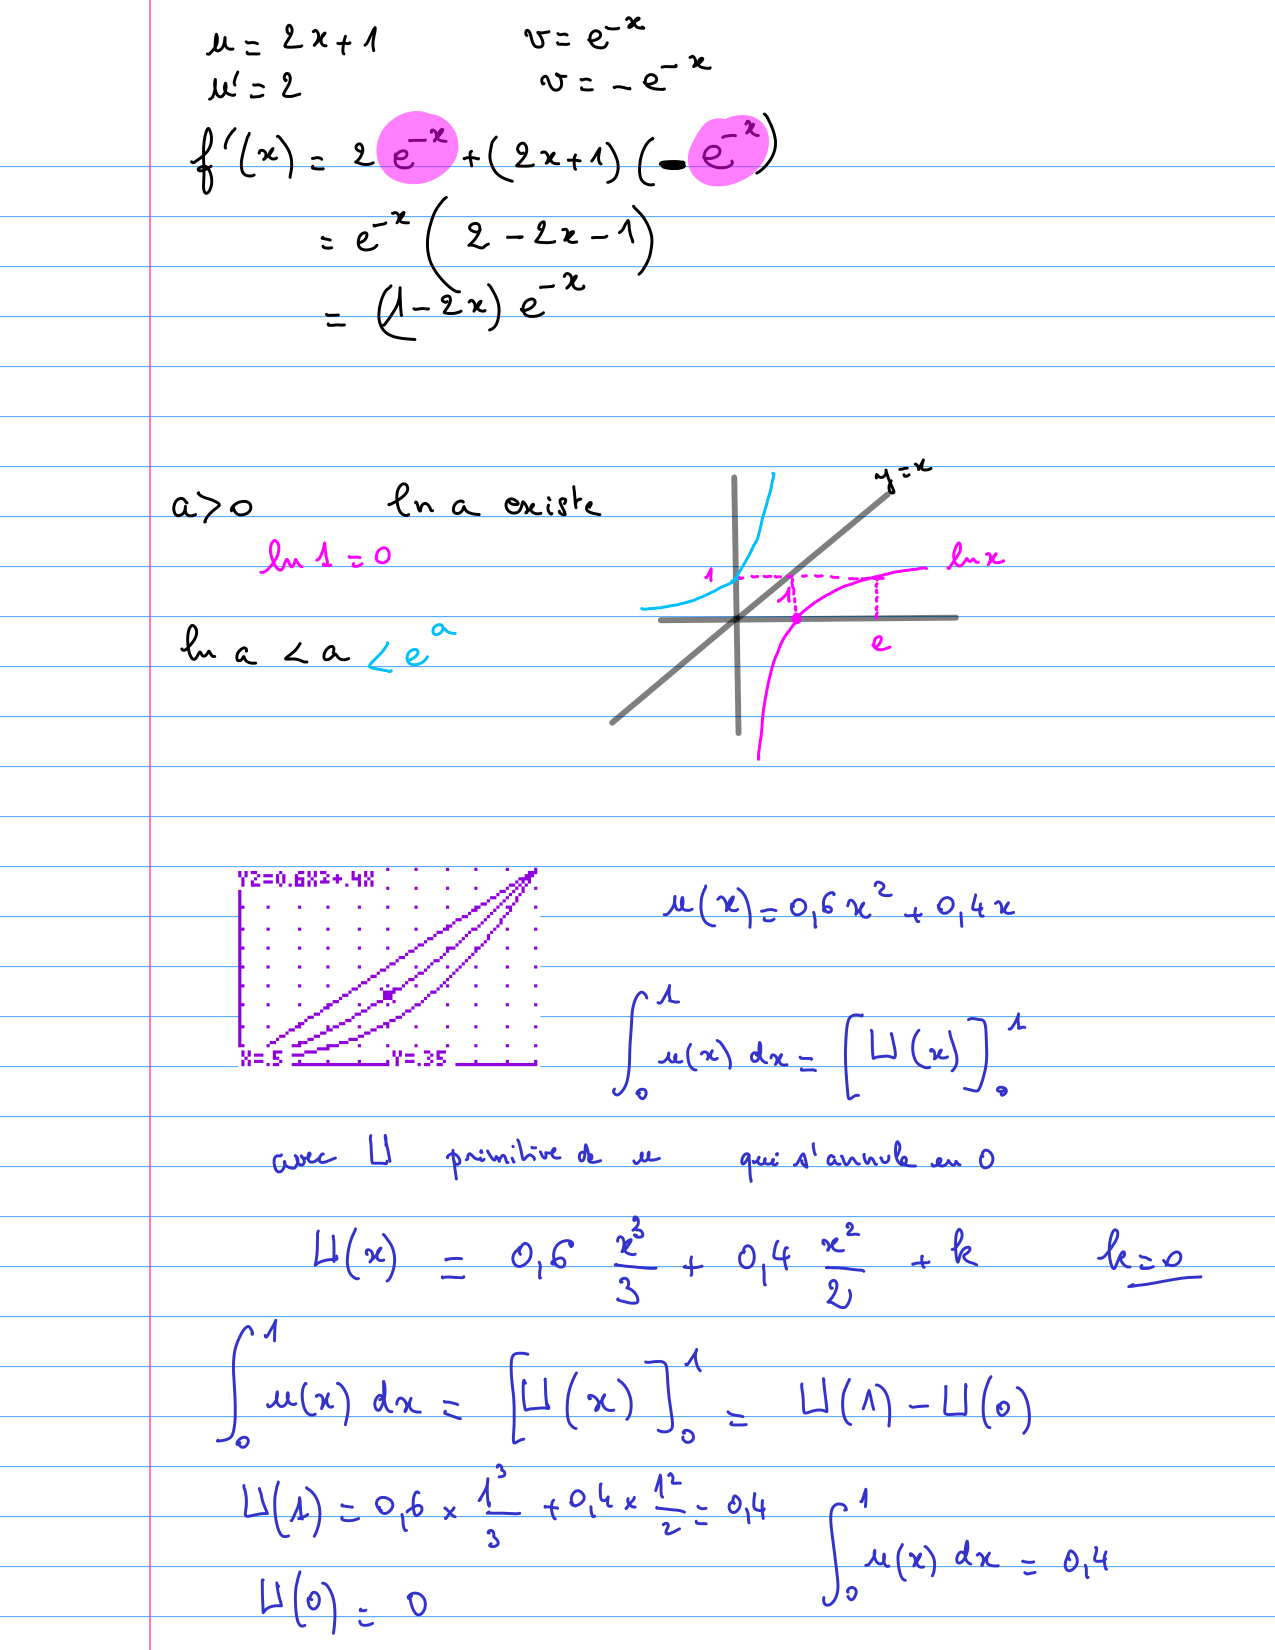 u = 2x+1 v = e^{-x}
u' = 2 v = -e^{-x}
f'(x) = 2 e^{-x} + (2x+1) (-e^{-x})
= e^{-x} (2 - 2x - 1)
= (1-2x) e^{-x}
y=x
a>0 ln a existe
ln 1 = 0
ln x
1
1
ln a < a < e^a
e
Y2=0.6X2+.4X
u(x) = 0,6 x² + 0,4 x
X=.5 Y=.35
∫_0^1 u(x) dx = [U(x)]_0^1
avec U primitive de u qui s'annule en 0
U(x) = 0,6 x³/3 + 0,4 x²/2 + k k=0
∫_0^1 u(x) dx = [U(x)]_0^1 = U(1) - U(0)
U(1) = 0,6 × 1³/3 + 0,4 × 1²/2 = 0,4
∫_0^1 u(x) dx = 0,4
U(0) = 0